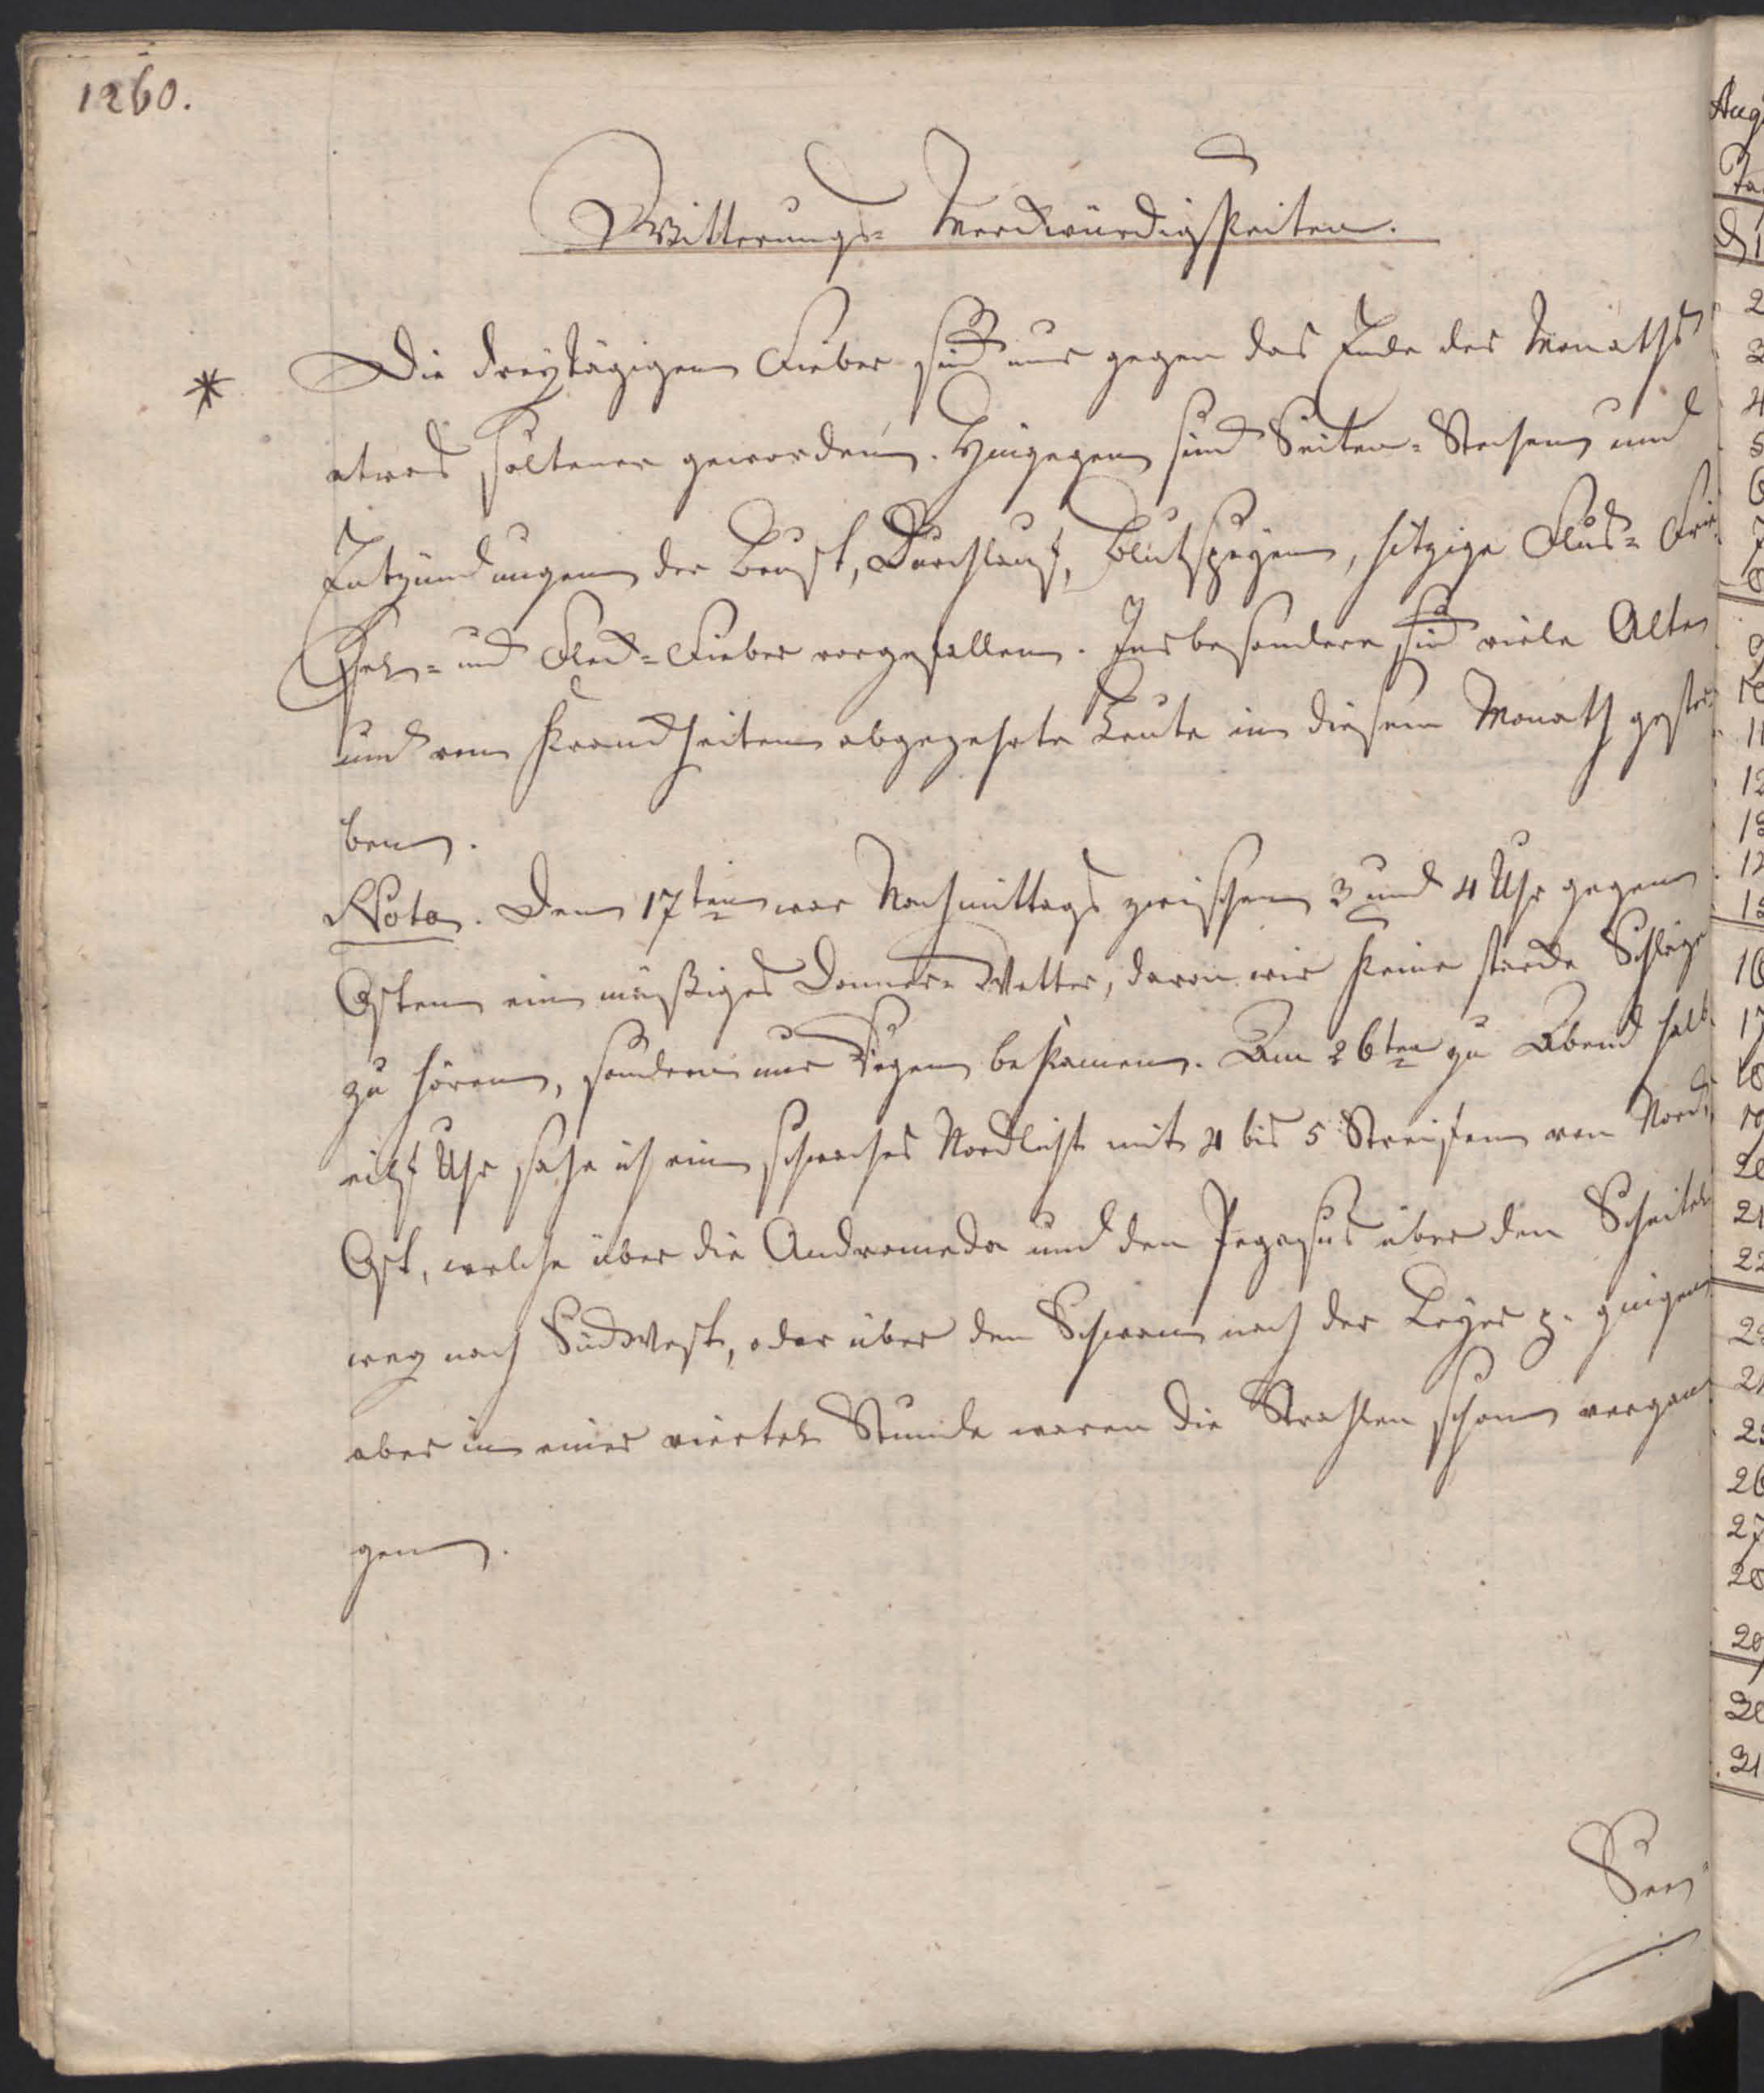 1260.
Witterungs- Merckwürdigkeiten.
* Die dreytägigen Fieber sind nur gegen das Ende des Monaths
etwas seltener geworden. Hingegen sind Seiten-Stechen und
Entzündungen der Brust, Durchlauf, Blutspeyen, hitzige Fluß- Frie-
sel- und Fleck-Fieber vorgefallen. Insbesondere sind viele Alte
und von Kranckheiten abgezehrte Leute in diesem Monath gestor-
ben.
Nota. Den 17ten war Nachmittags zwischen 3 und 4 Uhr gegen
Osten ein mäßiges Donner-Wetter, davon wir keine starcke Schläge
zu hören, sondern nur Regen bekamen. Am 26ten zu Abend halb
eilf Uhr sahe ich ein schwaches Nordlicht mit 4 bis 5 Streifen von Nord-
Ost, welche über die Andromeda und den Pegasus über den Scheitel
weg nach Südwest, oder über den Schwan nach der Leyer gingen
aber in einer viertel Stunde waren die Strahlen schon vergan-
gen.
Aug
Ta
2
3
4
5
6
7
8
9
10
11
12
13
15
16
17
18
19
20
21
22
25
26
27
28
29
30
31